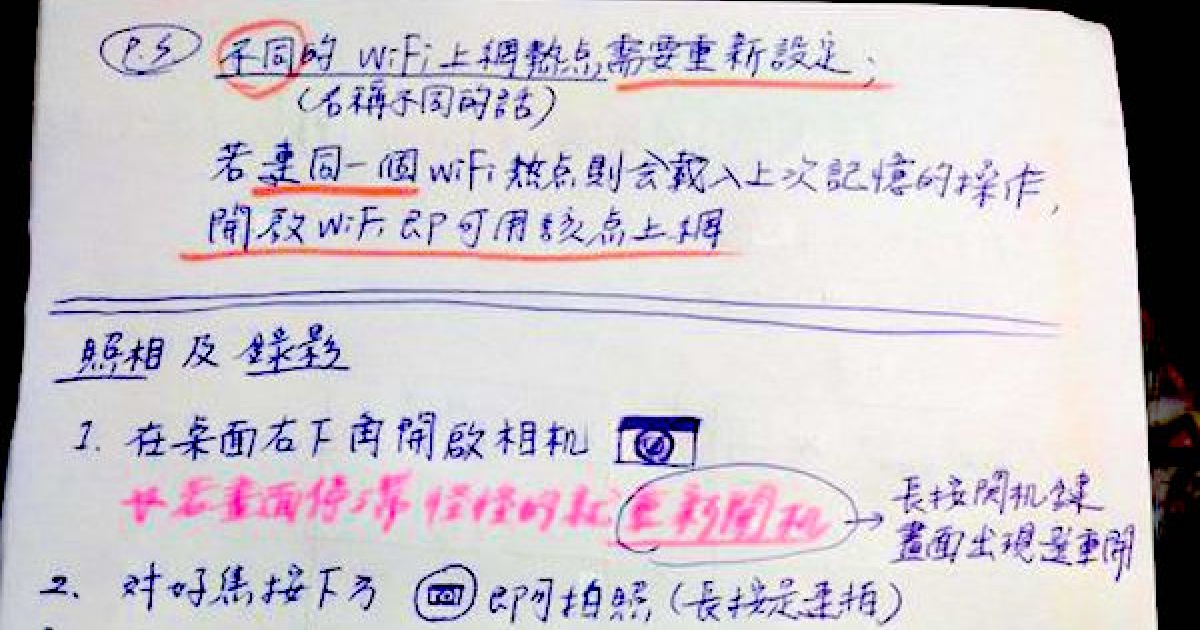 P.S 不同的 WiFi上網熱点,需要重新設定;
(名稱不同的話)
若連同一個WiFi熱点則会載入上次記憶的操作,
開啟WiFi即可用該点上網
照相及錄影
1. 在桌面右下角開啟相机
若畫面停滯怪怪的就重新開机 → 長按開机鍵
畫面出現選重開
2. 对好焦按下方 即可拍照(長按是連拍)